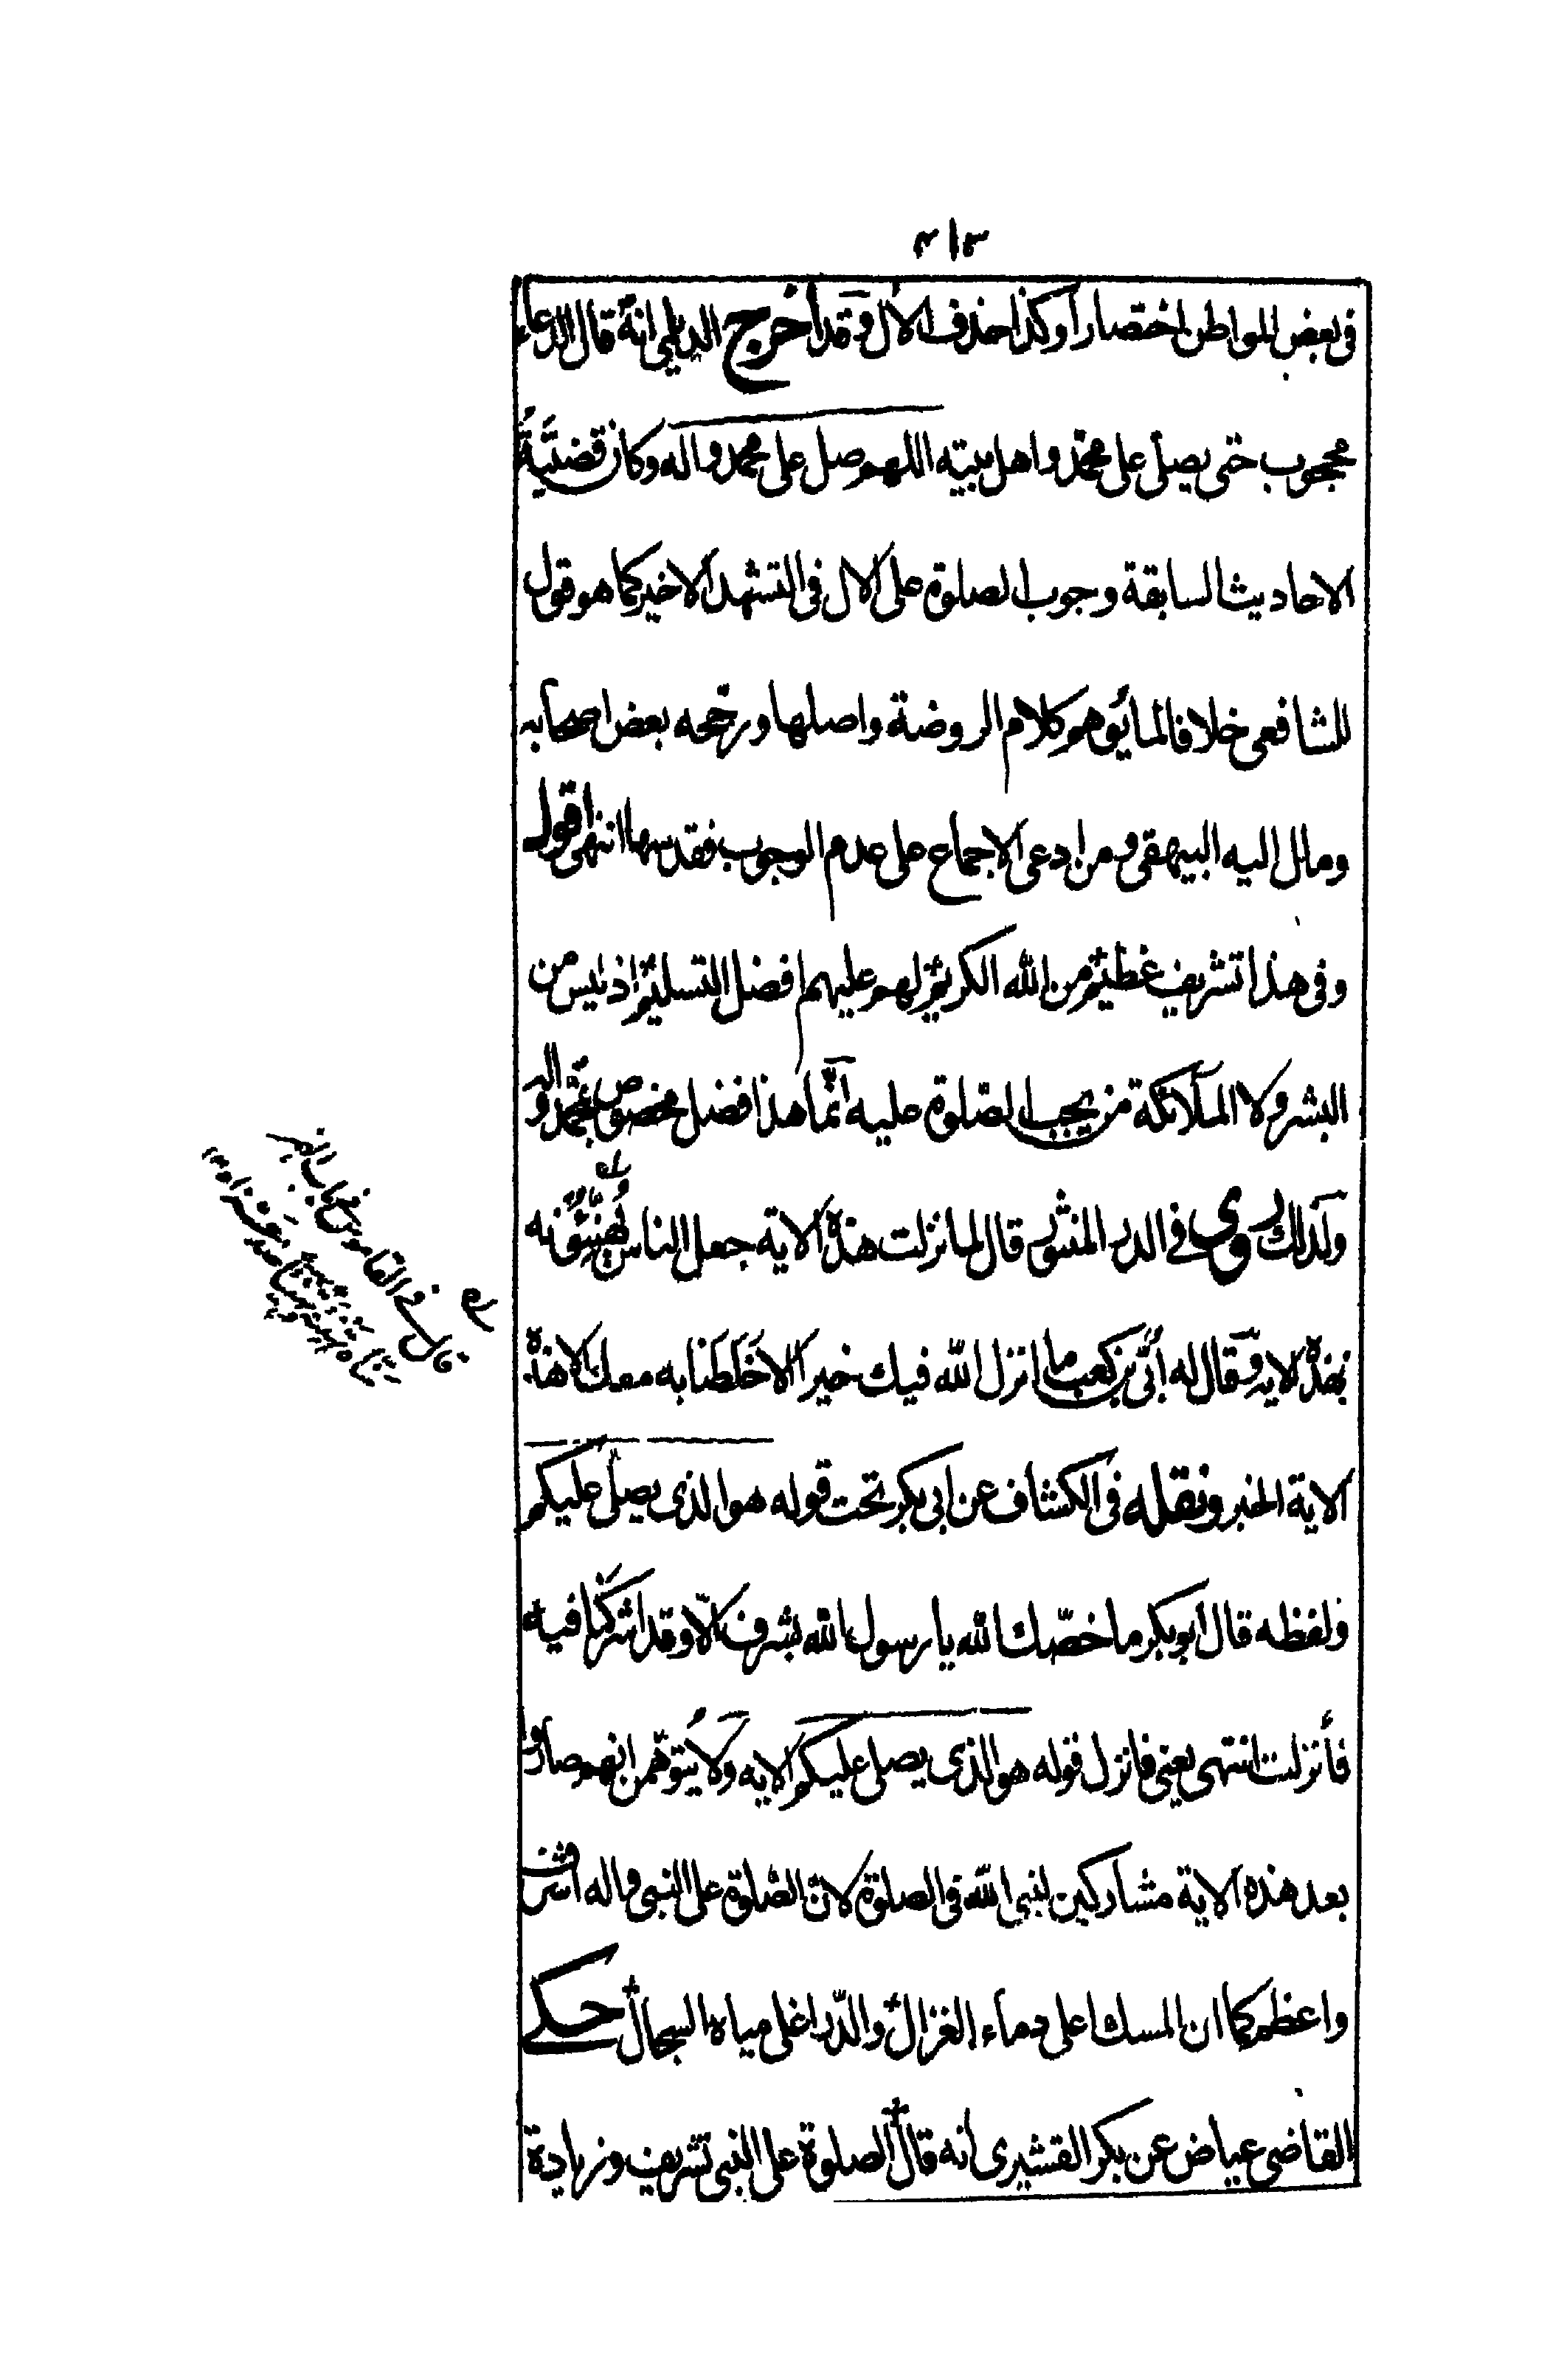 ٣١٣
فى بعض المواطن اختصارا وكذا حذف الال وقد اخرج الديلمى انه قال الدعاء
محجوب حتى يصلى على محمد واهل بيته اللهم صل على محمد واله وكان قضيّةُ
الاحاديث السابقة وجوب الصلوة على الال فى التشهد الاخير كما هو قول
للشافعى خلافا لما يوهمه كلام الروضة واصلها ورجّحه بعض اصحابه
ومال اليه البيهقى ومن ادعى الاجماع على عدم الوجوب فقد سها انتهى اقول
وفى هذا تشريف عظيم من الله الكريم لهم عليهم افضل التسليم اذ ليس من
البشر ولا الملائكة من يجب الصّلوة عليه انّما هذا فضل مخصوص بمحمد واله
ولذلك روى فى الدر المنثور قال لما نزلت هذه الاية جعل الناس يُهَنِّئُونه
بهذه الايه وقال له أُبَىّ بن كعب ما انزل الله فيك خيرا الا خَلَطَنا به معك الا هذه
الاية الخبر ونقله فى الكشاف عن ابى بكر تحت قوله هو الذى يصلى عليكم
ولفظه قال ابو بكر ما خصّك الله يا رسول الله بشرف الّا وقد اشركنا فيه
فأنزلت انتهى يعنى فانزل قوله هو الذى يصلى عليكم الايه ولا يُتوهّمن انهم صاروا
بعد هذه الاية مشاركين لنبى الله فى الصلوة لانّ الصّلوة على النبى واله اشرف
واعظم كما ان المسك اعلى دماء الغزال والدّر اغلى مياه السجال حكى
القاضى عياض عن بكر القشيرى انه قال الصلوة على النبى تشريف وزيادة
قال فى القاموس